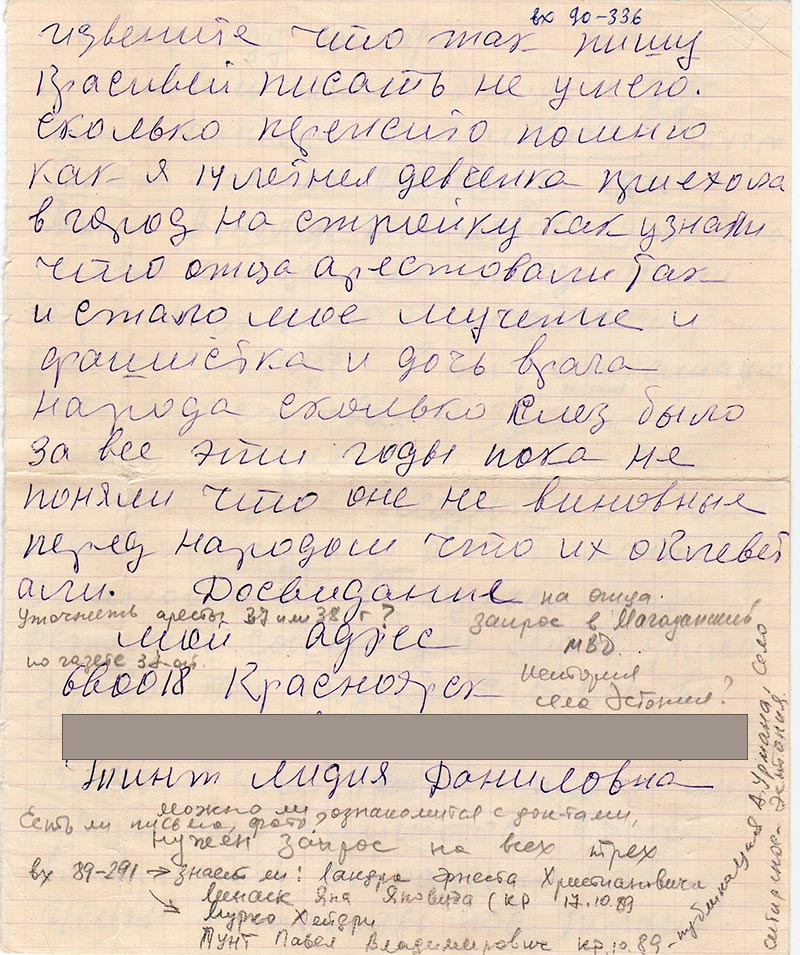 вх 90-336
извените что так пишу
красивей писать не умею.
сколько пережито помню
как я 14 летняя девченка приехола
в город на стройку как узнали
что отца арестовали так
и стало мое мучение и
фашистка и дочь врага
народа сколько слез было
за все эти годы пока не
поняли что оне не виновные
перед народом что их оклевет
али. Досвидание
на отца.
уточнить аресты 37 или 38 г?
запрос в Магаданский
МВД.
мой адрес
по газете 37
660018 Красноярск
История
села Эстония?
Тинт Лидия Даниловна
можно ли ознакомится с док-тами,
Есть ли письма, фото,
нужен запрос на всех трех
вх 89-291 → знает ли: Сандра Эрнеста Христиановича
Яна Яновича (КР 17.10.89
Мурко Хейдри
ПУНТ Павел Владимирович кр. 10.89-
публикация А. Урманд, Село
сибирское - Эстония.